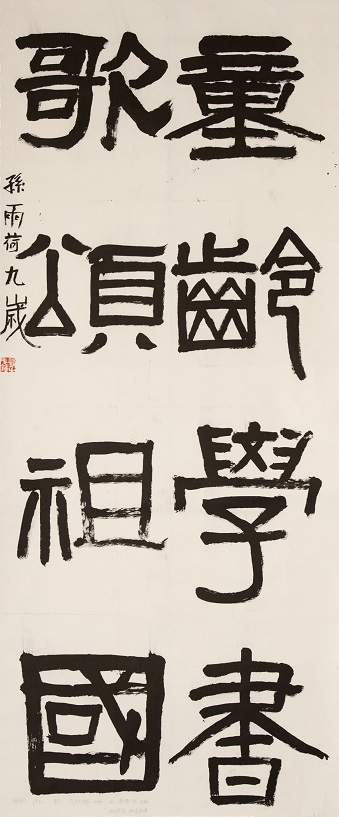 童齡學書
歌頌祖國
孫雨荷九歲